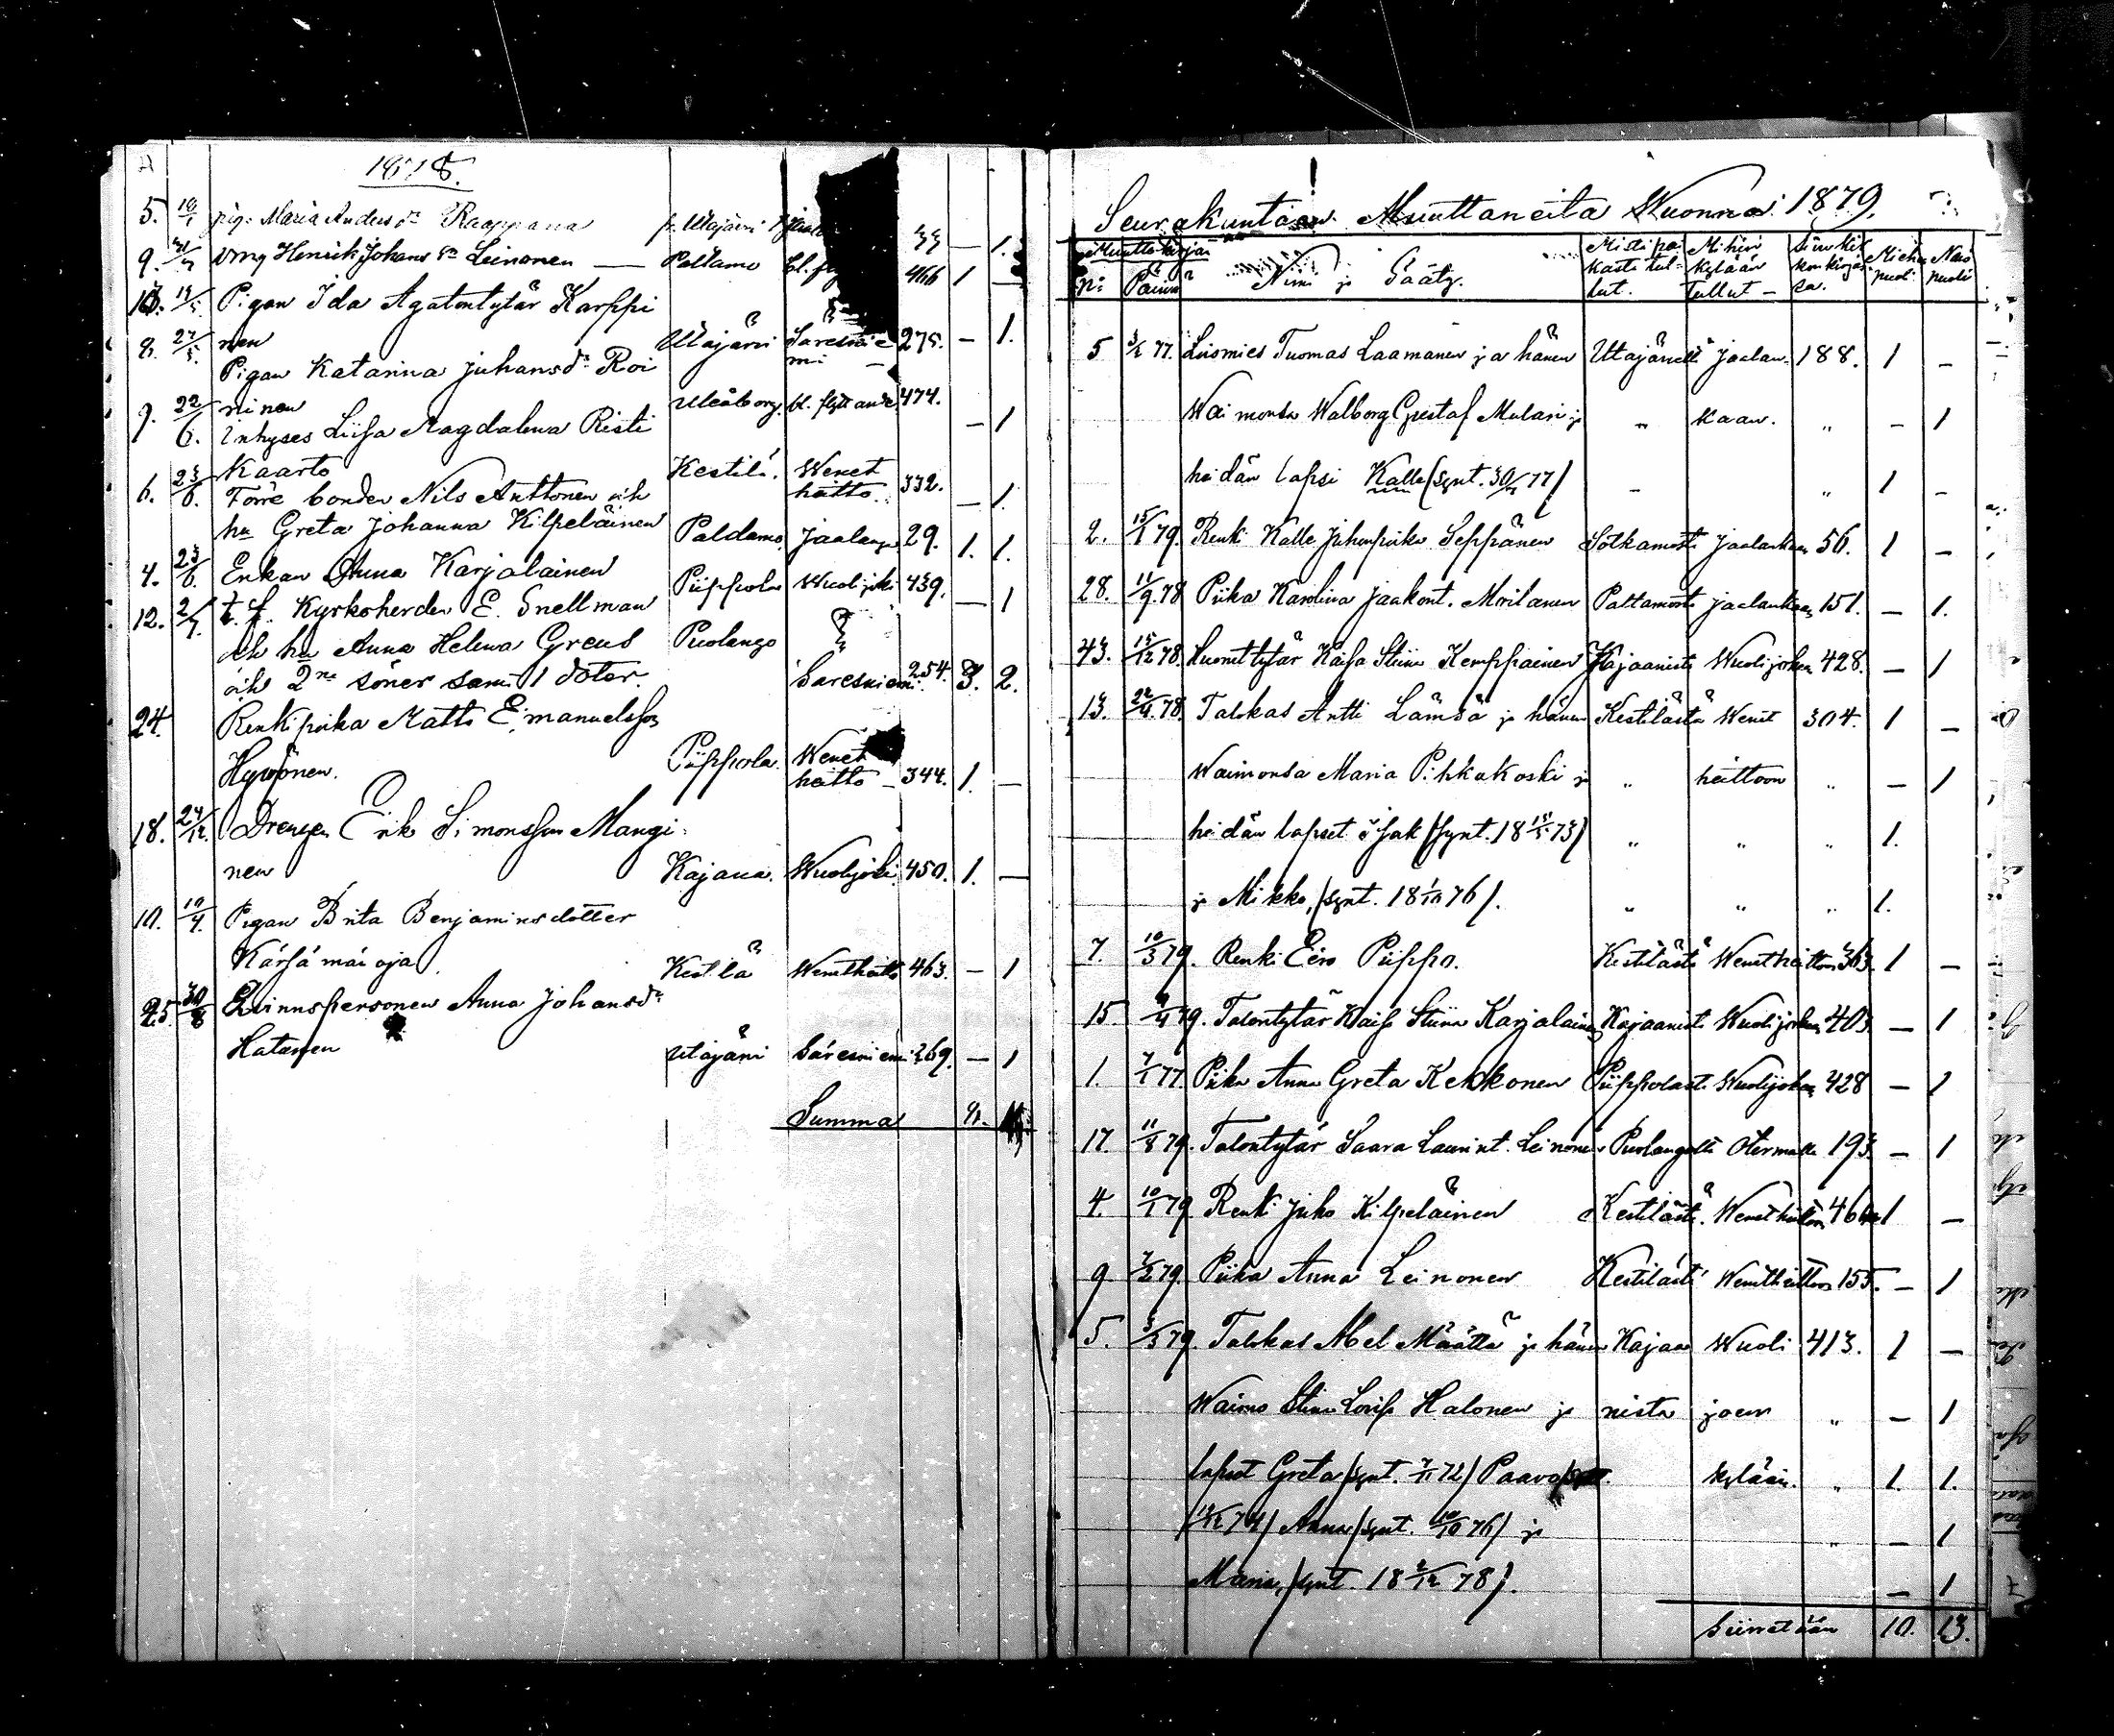 1878.
5. 18/1 pig. Maria Andersdr Raappana p. Utajärvi 33 — 1.
9. Henrik Johans sn Leinonen — Paltamo bl. 466 1 —
Pigan Ida Agatontytär Karppi
nen Utajärvi Säresnie 275. — 1.
8. 27/5. mi —
Pigan Katarina Juhansdr Roi
ninen Uleåborg bl. flyttande 474. — 1
9. 22/6. Inhyses Liisa Magdalena Risti
kaarto Kestilä. Wenet 332. — 1.
6. 23/6. Förre bonden Nils Anttonen och hätto.
hu Greta Johanna Kilpeläinen Paldamo Jaalanga 29. 1. 1.
4. 23/6. Enkan Anna Karjalainen Piippola Wuolijoki 439. — 1
12. 2/7. t. f. Kyrkoherden E. Snellman
och hu Anna Helena Greus Puolango
och 2ne söner samt 1 doter. Säresniemi 254. 3. 2.
24. Renkipoika Matts Emanuelsson
Hyvönen. Piippola. Wenet
hätto — 344. 1. —
18. 24/12. Drengen Erik Simonsson Mangi
nen Kajana. Wuolijoki 450. 1. —
10. 10/4. Pigan Brita Benjaminsdotter
Kärsämäoja Kestilä Wenethätto 463. — 1
25. 30/8 Qvinnspersonen Anna Johansdr
Hatanen Utajärvi Säresniemi 269. — 1
Summa 9.
Seurakuntaan Muuttaneita Wuonna 1879.
Muuttokirjan
No Päivä Nimi ja Sääty. Mistä pai Mihin Siv. kir Miehen Nais
kasta tul kylään kon kirjas puoli puoli
lut. Tullut — sa.
5 3/2 77. Loismies Tuomas Laamanen ja hänen Utajärveltä Jaalan 188. 1 —
Waimonsa Walborg Gustaf Mulari ja " kaan. " — 1
heidän lapsi Kalle (synt. 30/ 77) " 1 —
2. 15/1 79. Renki Kalle Juhonpoika Seppänen Sotkamosta Jaalankaan 56. 1 —
28. 11/9 78 Piika Karolina Jaakont. Moilanen Paltamosta Jaalankaan 151. — 1.
43. 15/12 78. Huonettytär Kaisa Stiina Kemppainen Kajaanista Wuolijoken 428. — 1
13. 22/4 78. Talokas Antti Lämsä ja hänen Kestilästä Wenet 304. 1 —
Waimonsa Maria Pihkakoski ja " hättoon " — 1
heidän lapset Isak (synt. 18 15/5 73) " " " 1.
ja Mikko, (synt. 18 1/10 76). " " " 1.
7. 10/3 79. Renki Eero Piippo. Kestilästä Wenethättoon 363. 1 —
15. 79. Talontytär Kaisa Stiina Karjalainen Kajaanista Wuolijoken 403. — 1
1. 7/1 77. Piika Anna Greta Kekkonen Piippolasta Wuolijoken 428 — 1
17. 11/8 79. Talontytär Saara Laurint. Leinonen Puolangalta Otermalle 193. — 1
4. 10/1 79 Renki Juho Kilpeläinen Kestilästä. Wenethättoon 464 1 —
9 7/2 79. Piika Anna Leinonen Kestilästä Wenethättoon 155. — 1
5. 3/3 79. Talokas Abel Määttä ja hänen Kajaa Wuoli 413. 1 —
Waimo Stiina Lovisa Halonen ja nista joen " — 1
lapset Greta (synt. 72) Paavo kylään. " 1. 1.
74) Anna (synt. 10/10 76) ja " — 1
Maria, (synt. 18 2/12 78). — 1
Siirretään 10. 13.